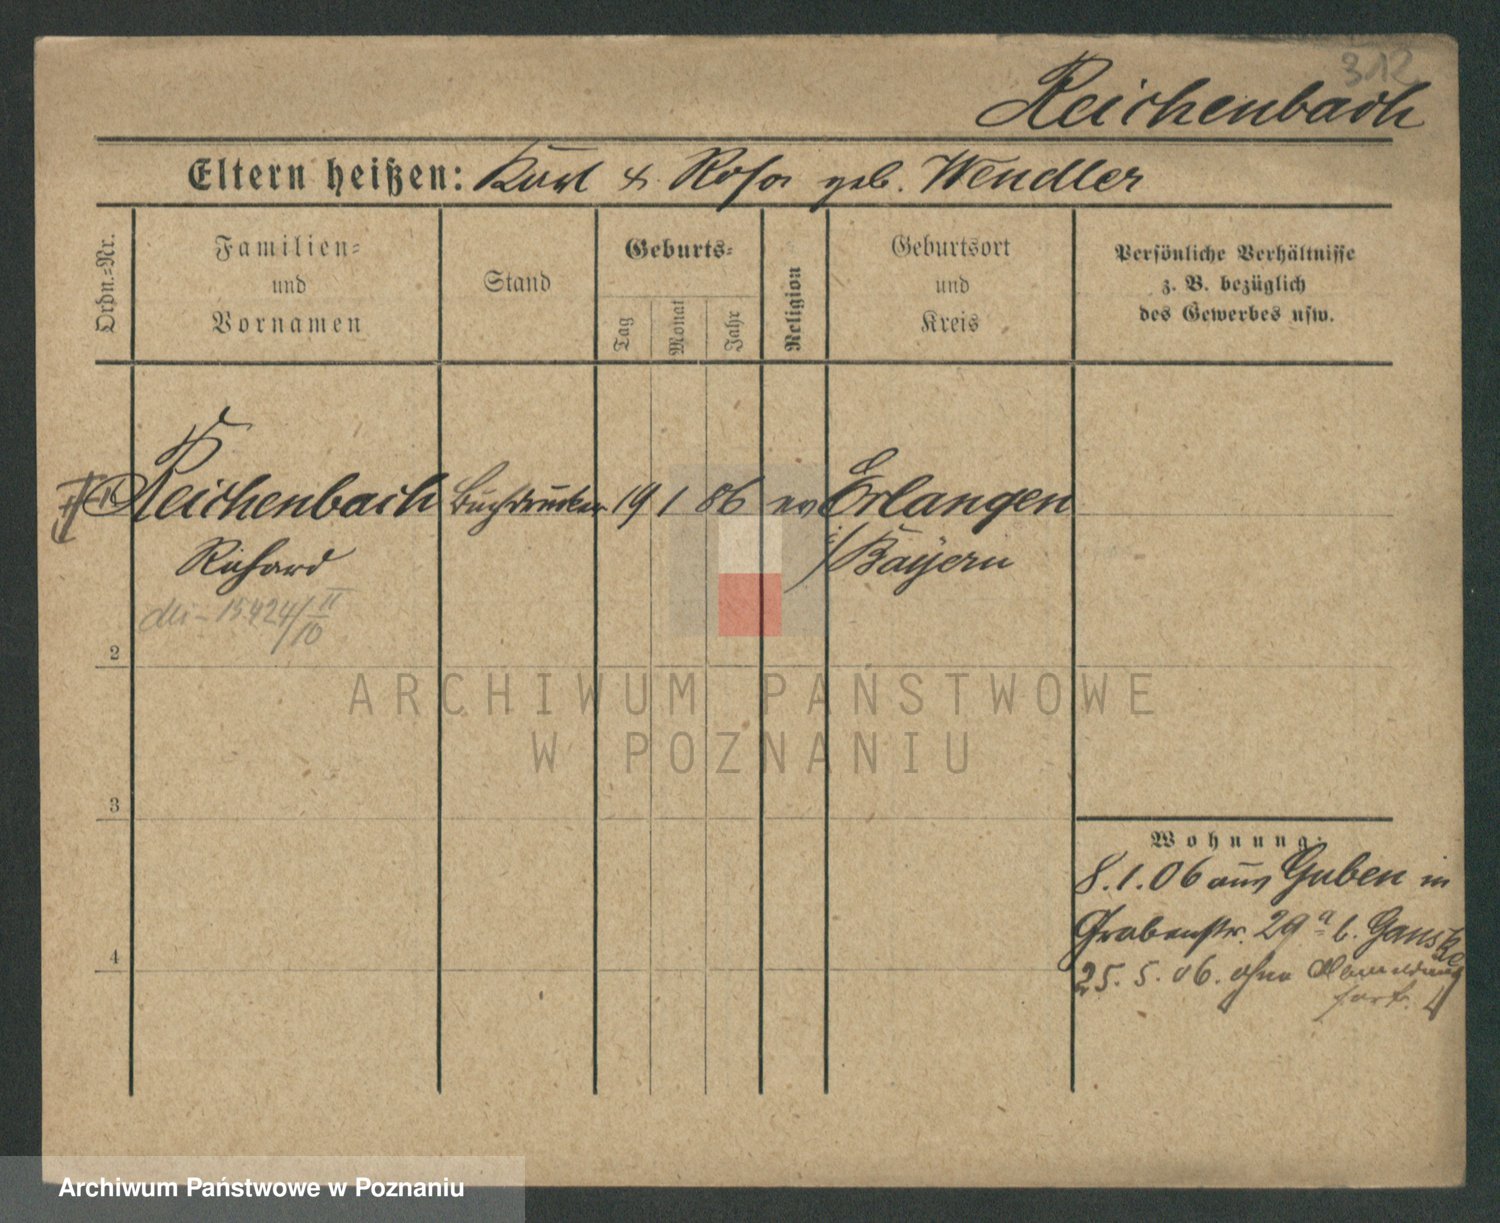 312
Reichenbach
Eltern heißen: Karl & Rosa geb. Wendler
Ordn.=Nr.
Familien=
und
Vornamen
Stand
Geburts=
Tag
Monat
Jahr
Religion
Geburtsort
und
Kreis
Persönliche Verhältnisse
z. B. bezüglich
des Gewerbes usw.
1 Reichenbach Buchdrucker 19 1 86 ev Erlangen
Richard i/Bayern
15424/II/10
2
3
4
Wohnung:
8.1.06 aus Guben in
Grabenstr. 29a b. Ganske
25.5.06. ohne Abmeldung
fort.
ARCHIWUM PAŃSTWOWE
W POZNANIU
Archiwum Państwowe w Poznaniu